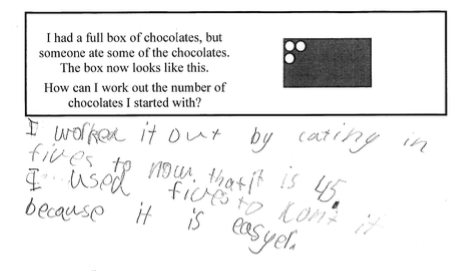 I had a full box of chocolates, but
someone ate some of the chocolates.
The box now looks like this.
How can I work out the number of
chocolates I started with?
I worked it out by cating in
fives to now that it is 45.
I used fives to kont it
because it is easyer.